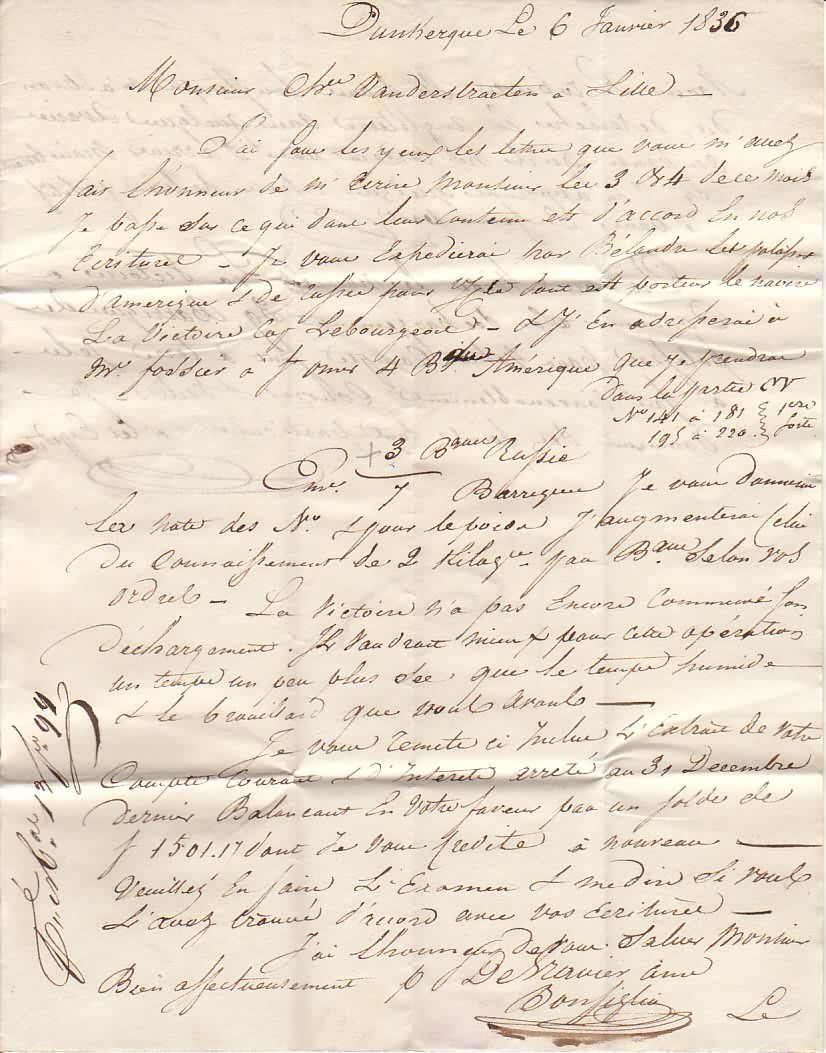 Dunkerque Le 6 Janvier 1836
Monsieur Ch. Vanderstraeten a Lille —
J'ai sous les yeux les lettres que vous m'avez
fait l'honneur de m'ecrire Monsieur les 3 & 4 de ce mois
Je passe sur ce qui dans leur contenu est d'accord En nos
Ecritures — Je vous Expedierai par Bélandre les potasses
d'amerique & de russie pour dont est porteur le navire
La Victoire Cap Lebourgeois — & J'En adresserai à
Mr. fossier à St omer 4 Bques Amérique que Je prendrai
dans la partie
Nos 141 à 181 } 1ere
195 à 220 } sorte
+ 3 Bques Russie
Enn. 7 Barriques Je vous donnerai
les note des Nos & pour le poids J'augmenterai Celui
du Connaissement de 2 Kilog. par Bque Selon vos
ordres — La Victoire n'a pas Encore Commencé son
déchargement. Il Vaudrait mieux pour cette opération
un temps un peu plus sec, que le temps humide
& le brouillard que nous avons —
Je vous remets ci Inclus L'Extrait de Votre
Compte Courant & d'Interets arreté au 31 Decembre
dernier Balancant En Votre faveur par un solde de
f 1501.17 dont Je vous Credite à nouveau —
Veuillez En faire L'Examen & me dire Si vous
L'avez trouvé d'accord avec vos Ecritures —
J'ai l'honneur de vous Saluer Monsieur
Bien affectueusement p Dekervier ainé
Bonsiglio
Le
13 99